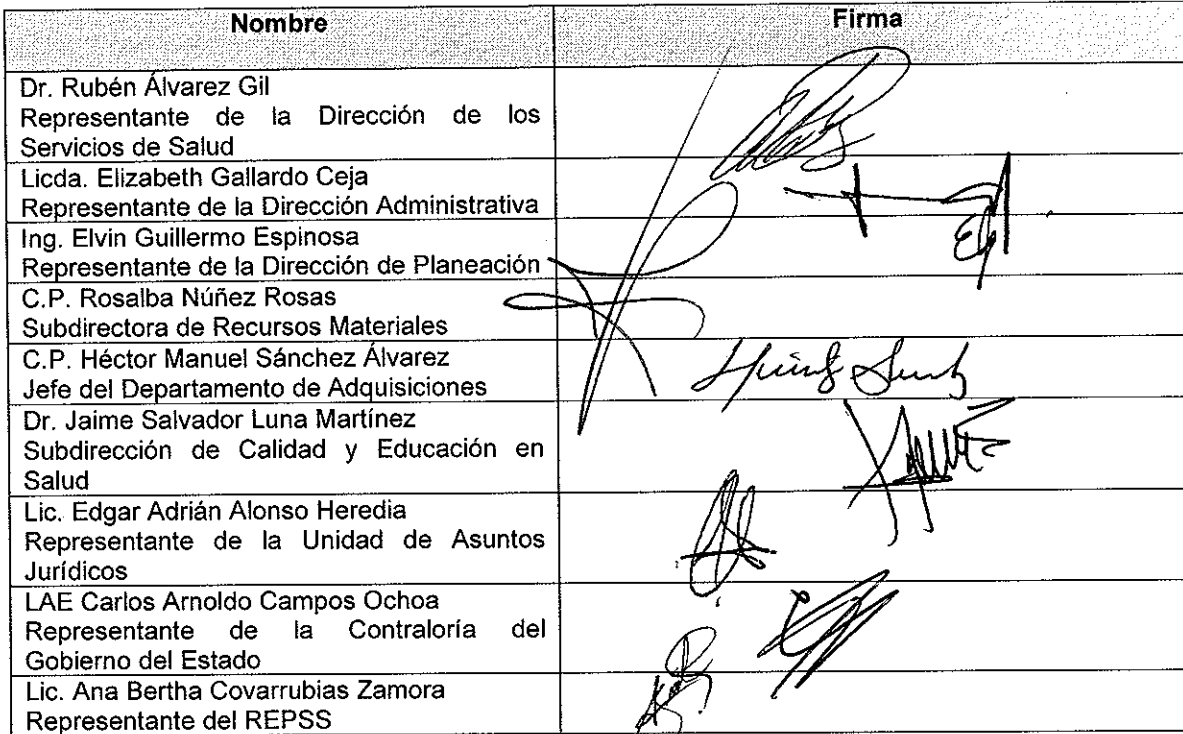 Nombre Firma
Dr. Rubén Álvarez Gil
Representante de la Dirección de los
Servicios de Salud
Licda. Elizabeth Gallardo Ceja
Representante de la Dirección Administrativa
Ing. Elvin Guillermo Espinosa
Representante de la Dirección de Planeación
C.P. Rosalba Núñez Rosas
Subdirectora de Recursos Materiales
C.P. Héctor Manuel Sánchez Álvarez
Jefe del Departamento de Adquisiciones
Dr. Jaime Salvador Luna Martínez
Subdirección de Calidad y Educación en
Salud
Lic. Edgar Adrián Alonso Heredia
Representante de la Unidad de Asuntos
Jurídicos
LAE Carlos Arnoldo Campos Ochoa
Representante de la Contraloría del
Gobierno del Estado
Lic. Ana Bertha Covarrubias Zamora
Representante del REPSS